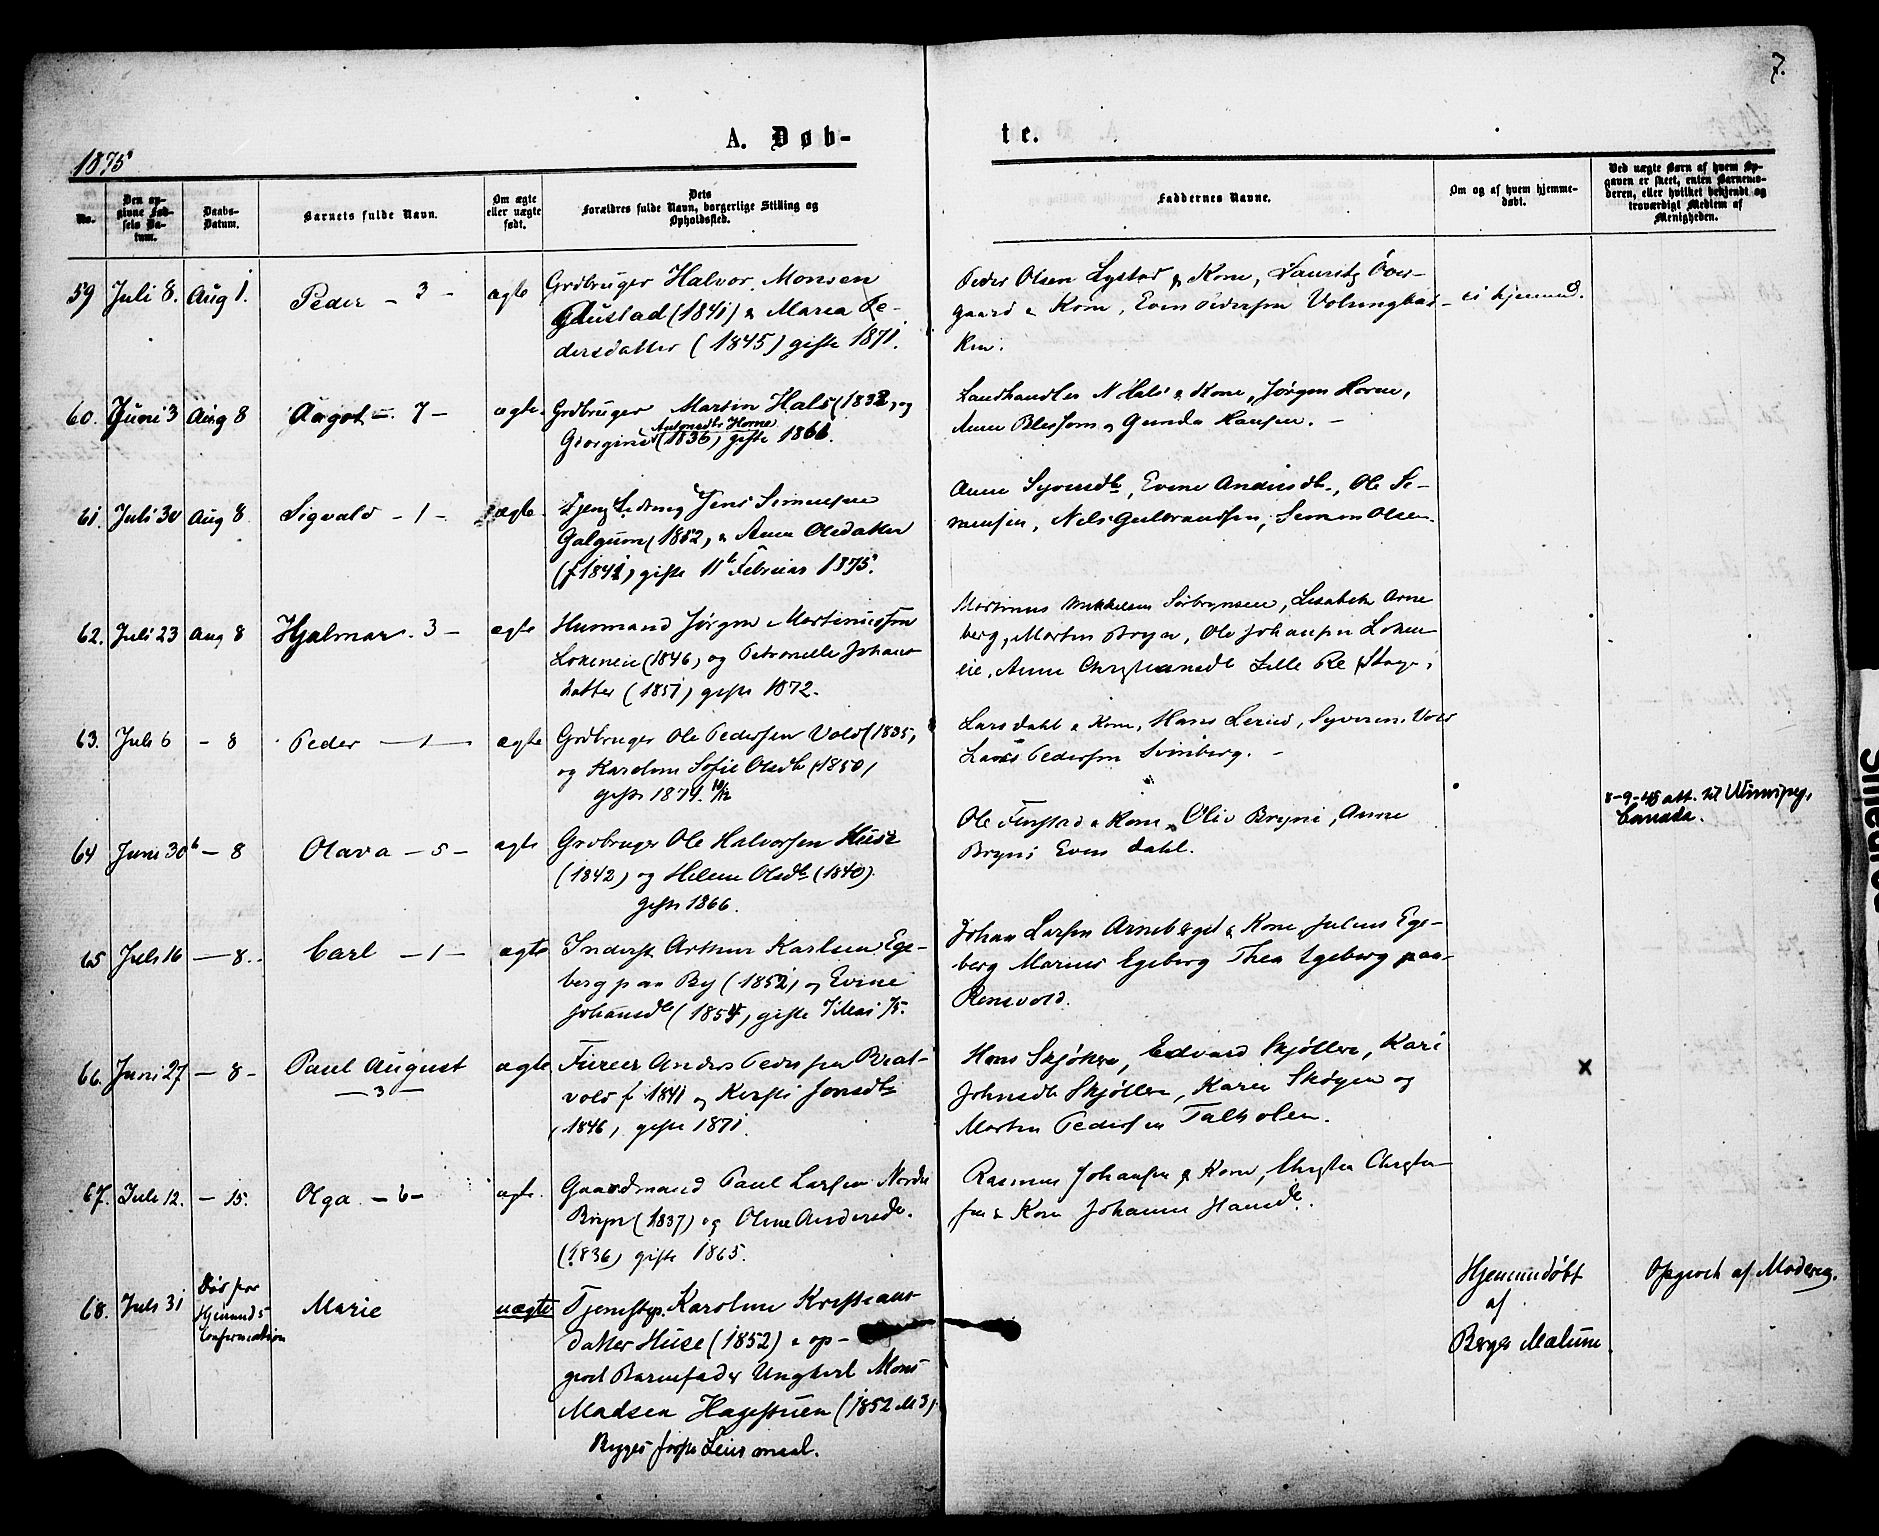 7.
A. Døb-
te.
1875
No.
Den op-
givne Fød-
sels Da-
tum.
Daabs-
Datum.
Barnets fulde Navn.
Om ægte
eller uægte
født.
Dets
Forældres fulde Navn, borgerlige Stilling og
Opholdssted.
Faddernes Navne.
Om og af hvem hjemme-
døbt.
Ved uægte Børn af hvem Op-
gaven er skeet, enten Barnemo-
deren, eller hvilket bekjendt og
troværdigt Medlem af
Menigheden.
59 Juli 8. Aug 1. Peder - 3 - ægte
Grdbruger Halvor Monsen
Gaustad (1841) & Marea Pe-
dersdatter (1845) gifte 1871.
Peder Olsen Lystad & Kone, Lauritz Över-
gaard & Kone, Even Pedersen Volungbak-
ken.
ei hjemmed.
60. Juni 3 Aug 8 Aagot - 7 - ægte
Grdbruger Martin Hals (1832) og
Georgine (1836) gifte 1861.
Landhandler N Hals & Kone, Jørgen Horne,
Anne Blessom og Gunda Hansen. -
61. Juli 30 Aug 8 Sigvald - 1 - ægte
Jens Simensen
Galgum (1852) & Anne Olsdatter
(f 1841) gifte 11te Februar 1875.
Anne Syversdtr, Evine Andersdtr, Ole Si-
mensen, Nels Gulbrandsen, Simen Olsen.
62. Juli 23 Aug 8 Hjalmar - 3 - ægte
Husmand Jørgen Martinussen
Lokeneie (1846) og Petronelle Johans-
datter (1851) gifte 1872.
Martinus Mikkelsen Sørbrynseie, Lisabeth Arne
berg, Martin Bryn, Ole Johansen Loken
eie, Anne Christiansdtr Lille Re
63. Juli 6 - 8 Peder - 1 - ægte
Grdbruger Ole Pedersen Vold (1835)
og Karoline Sofie Olsdtr (1850)
gifte 1874 10/12
Lars Dahl & Kone, Hans Lerud, Syverine Vold
Lars Pedersen Svinberg. -
64 Juni 30te - 8 Olava - 5 - ægte
Grdbruger Ole Halvorsen Huse
(1842) og Helene Olsdtr (1840)
gifte 1866.
Ole Finstad & Kone, Oliv Bryni, Anne
Bryni Even Dahl.
8-9-45 att. til Winnipeg,
Canada.
65 Juli 16 - 8 - Carl - 1 - ægte
Inderst Arthur Karlsen Ege-
berg paa By (1852) og Evine
Johansdtr (1854) gifte 7 Mai 75.
Johan Larsen Arneberget & Kone Julius Ege-
berg Marius Egeberg Thea Egeberg paa
Rensvold.
66. Juni 27 - 8 - Paul August ægte
- 3 -
Anders Pedersen Brat-
vold f 1841 og Kersti Jonsdtr
(1846) gifte 1871.
Hans Skjøllen, Edvard Skjøllen, Kari
Johnsdtr Skjøllen, Karen Skogen og
Martin Pedersen Talholen.
x
67. Juli 12. - 15. Olga - 6 - ægte.
Gaardmand Paul Larsen Nordre
Bryn (1837) og Oline Andersdtr.
(1836) gifte 1865.
Rasmus Johansen & Kone, Christen Christen-
sen & Kone Johanne Hansdtr.
68. Juli 31 Død før
Hjemmed's
Confirmation
Marie uægte
Tjenestep. Karoline Kristians-
datter Huse (1852) & op-
givet Barnefader Ungkarl Mons
Madsen Hagestuen (1852 No 3)
Begges første Leiermaal.
Hjemmedøbt
af
Berger Mælum.
Opgivet af Moderen.